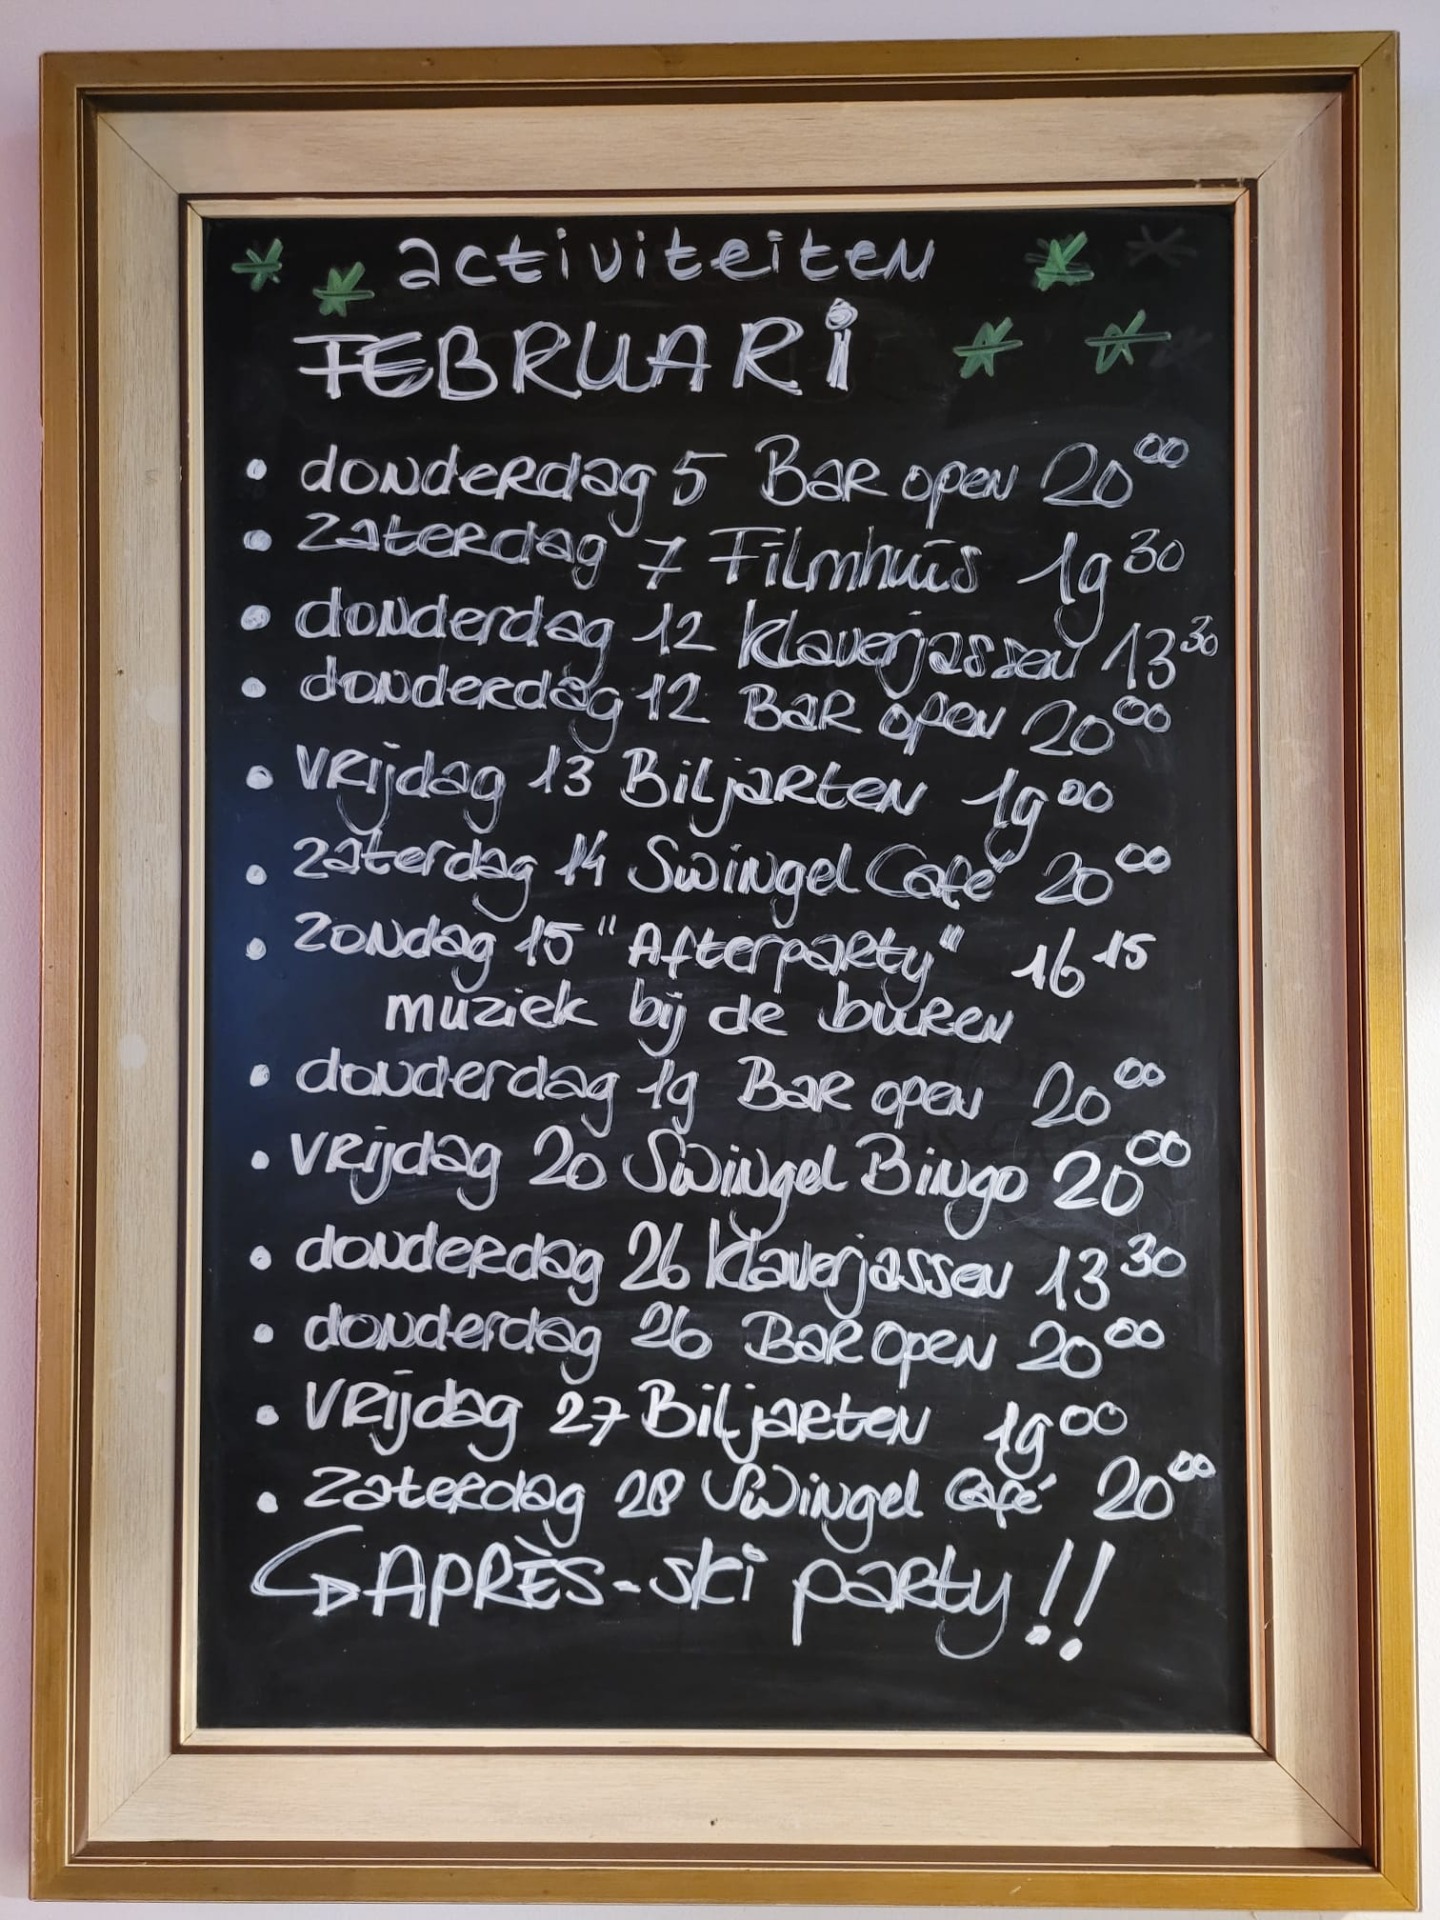 activiteiten
FEBRUARI
• donderdag 5 Bar open 20⁰⁰
• zaterdag 7 Filmhuis 19³⁰
• donderdag 12 klaverjassen 13³⁰
• donderdag 12 Bar open 20⁰⁰
• vrijdag 13 Biljarten 19⁰⁰
• zaterdag 14 Swingel Café 20⁰⁰
• zondag 15 "Afterparty" 16¹⁵
muziek bij de buren
• donderdag 19 Bar open 20⁰⁰
• vrijdag 20 Swingel Bingo 20⁰⁰
• donderdag 26 klaverjassen 13³⁰
• donderdag 26 Bar open 20⁰⁰
• vrijdag 27 Biljarten 19⁰⁰
• zaterdag 28 Swingel Café 20⁰⁰
↪ APRÈS-ski party!!